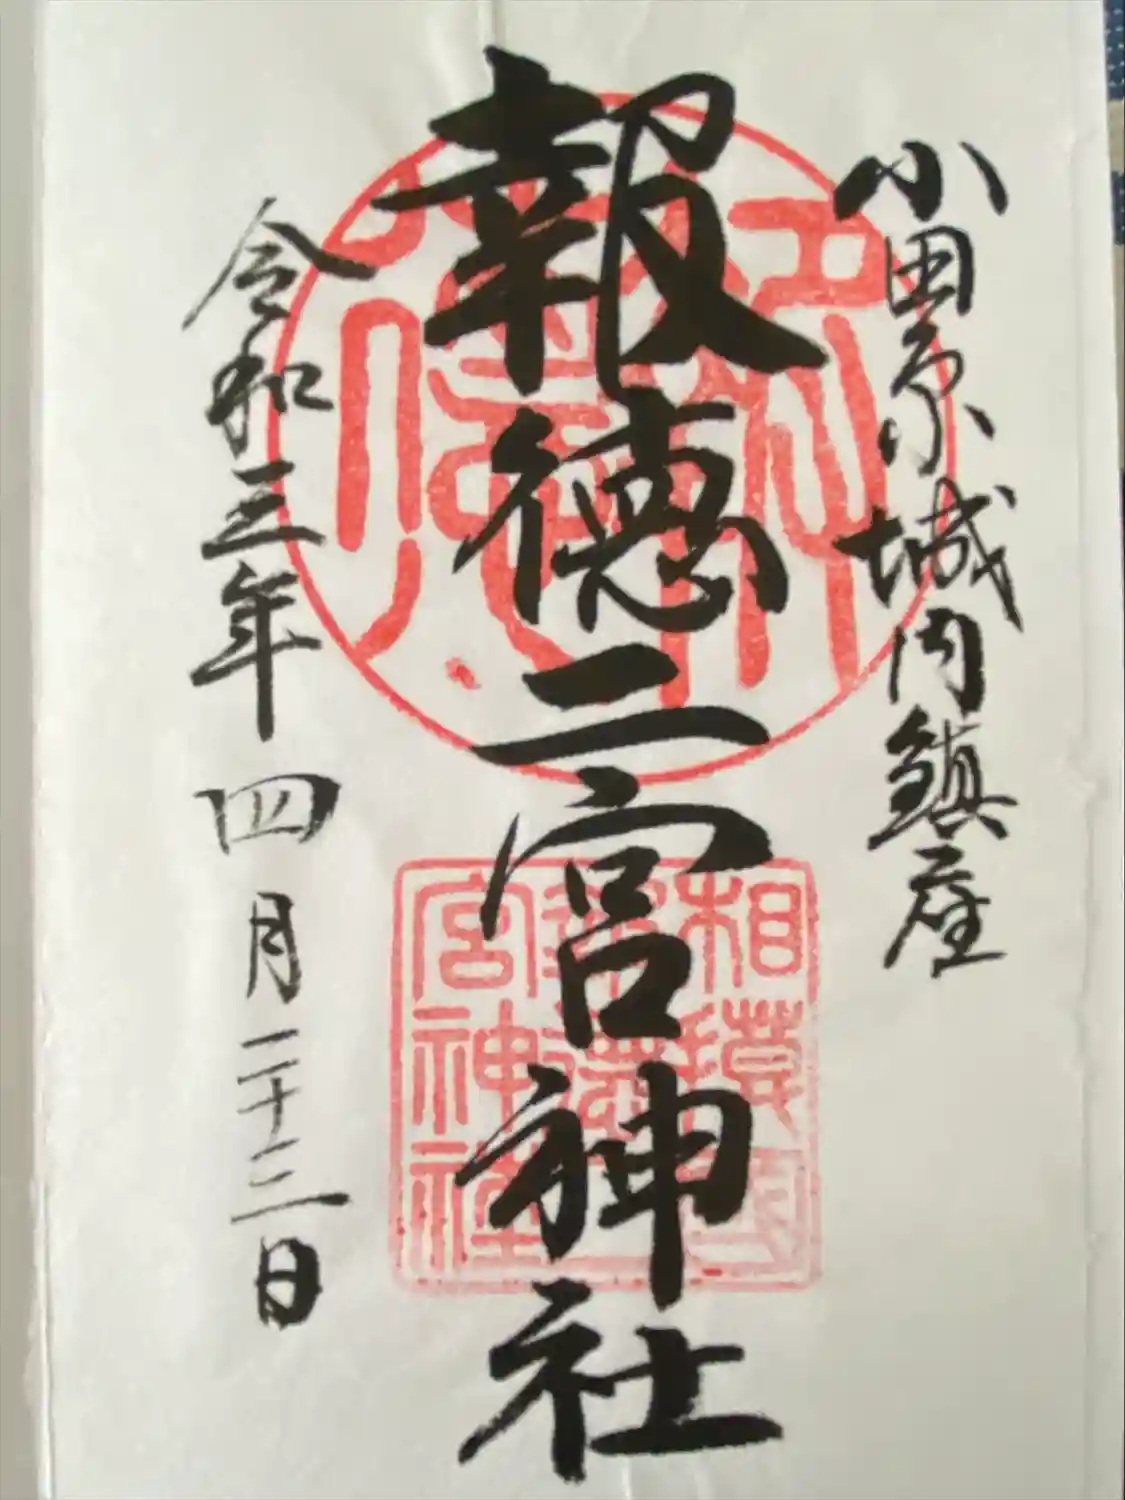 小田原城内鎮座
報徳二宮神社
令和三年 四月二十三日
相模國
報徳二
宮神社